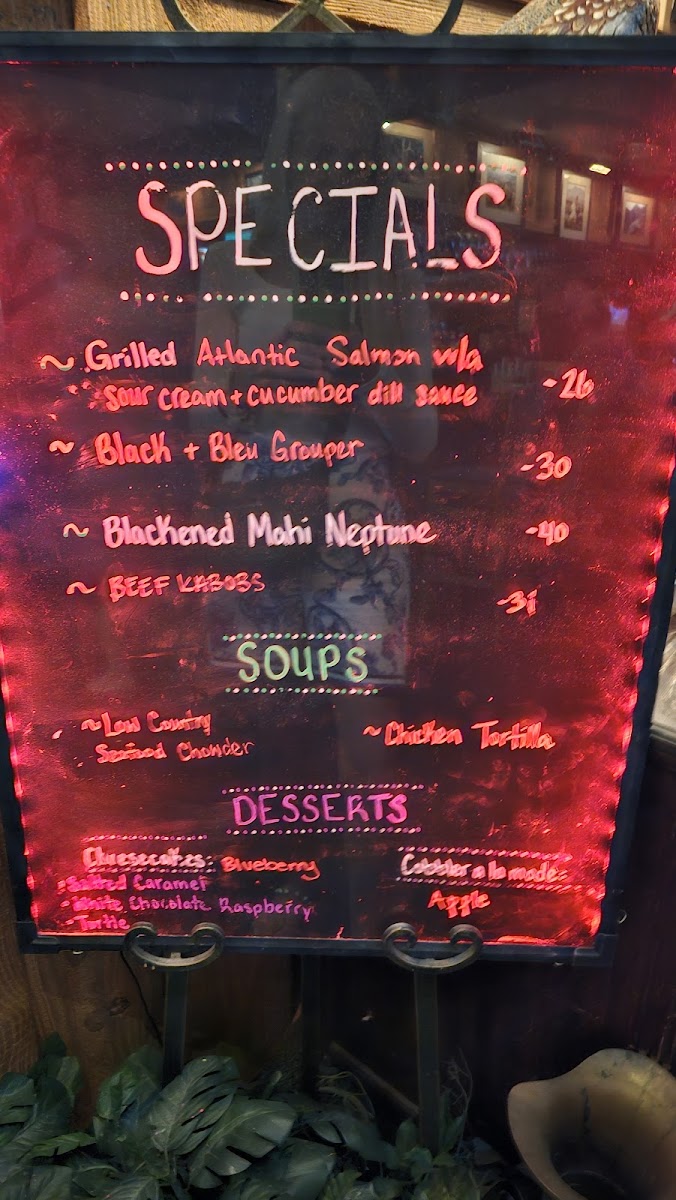 SPECIALS
~ Grilled Atlantic Salmon w/a
sour cream + cucumber dill sauce -26
~ Black + Bleu Grouper -30
~ Blackened Mahi Neptune -40
~ BEEF KABOBS -31
SOUPS
~ Low Country
Seafood Chowder
~ Chicken Tortilla
DESSERTS
Cheesecakes: Blueberry
- Salted Caramel
- White Chocolate Raspberry
- Turtle
Cobbler a la mode:
Apple